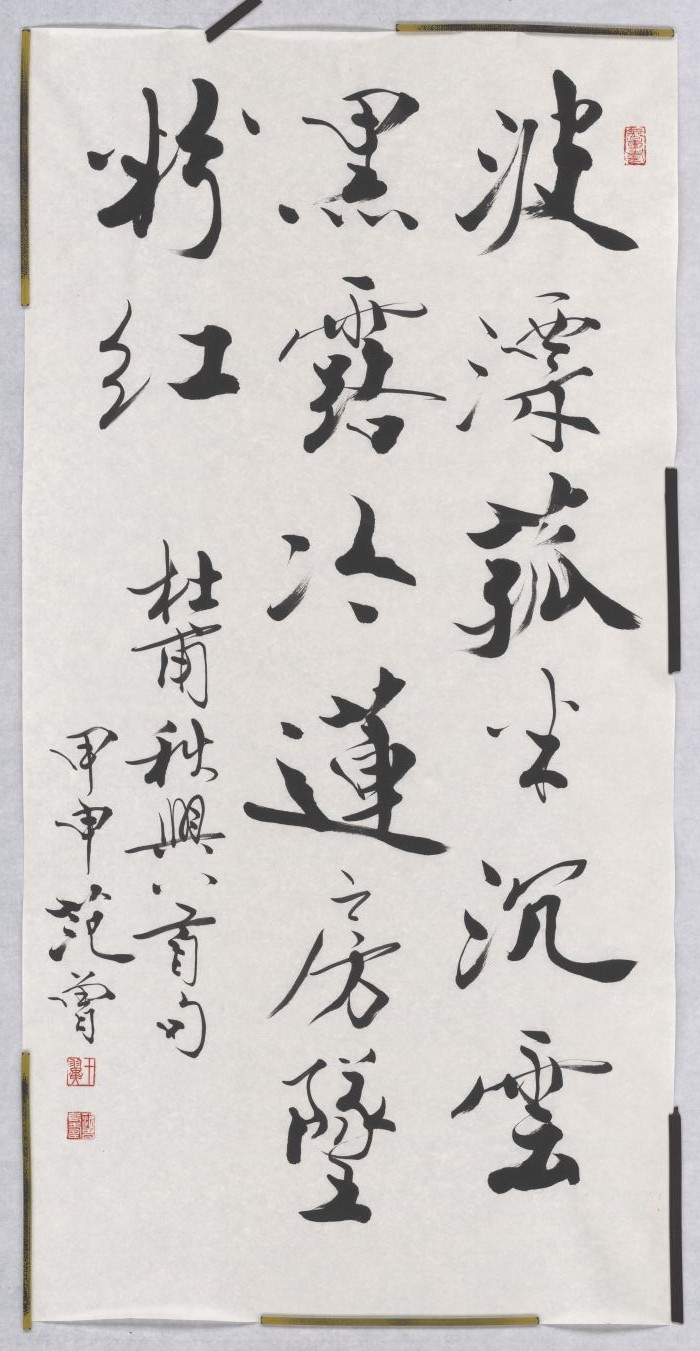 波漂菰米沉雲
黑露冷蓮房墜
粉红
杜甫秋興八首句
甲申范曾